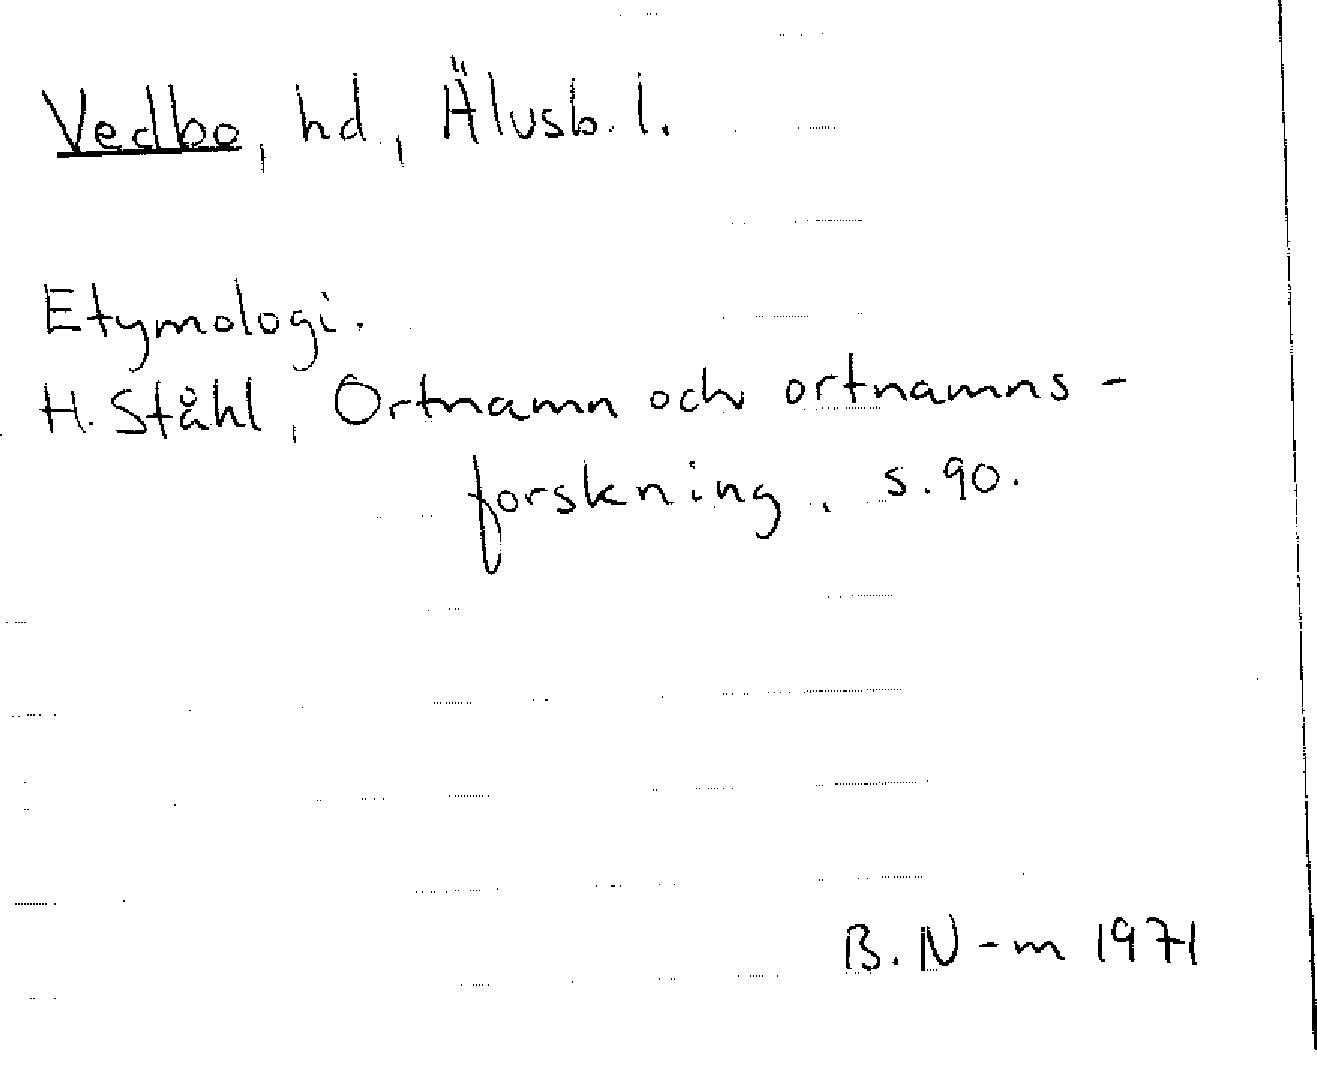 Vedbo, hd, Älvsb. l.
Etymologi.
H. Ståhl, Ortnamn och ortnamns-
forskning, s. 90.
B. N-m 1971